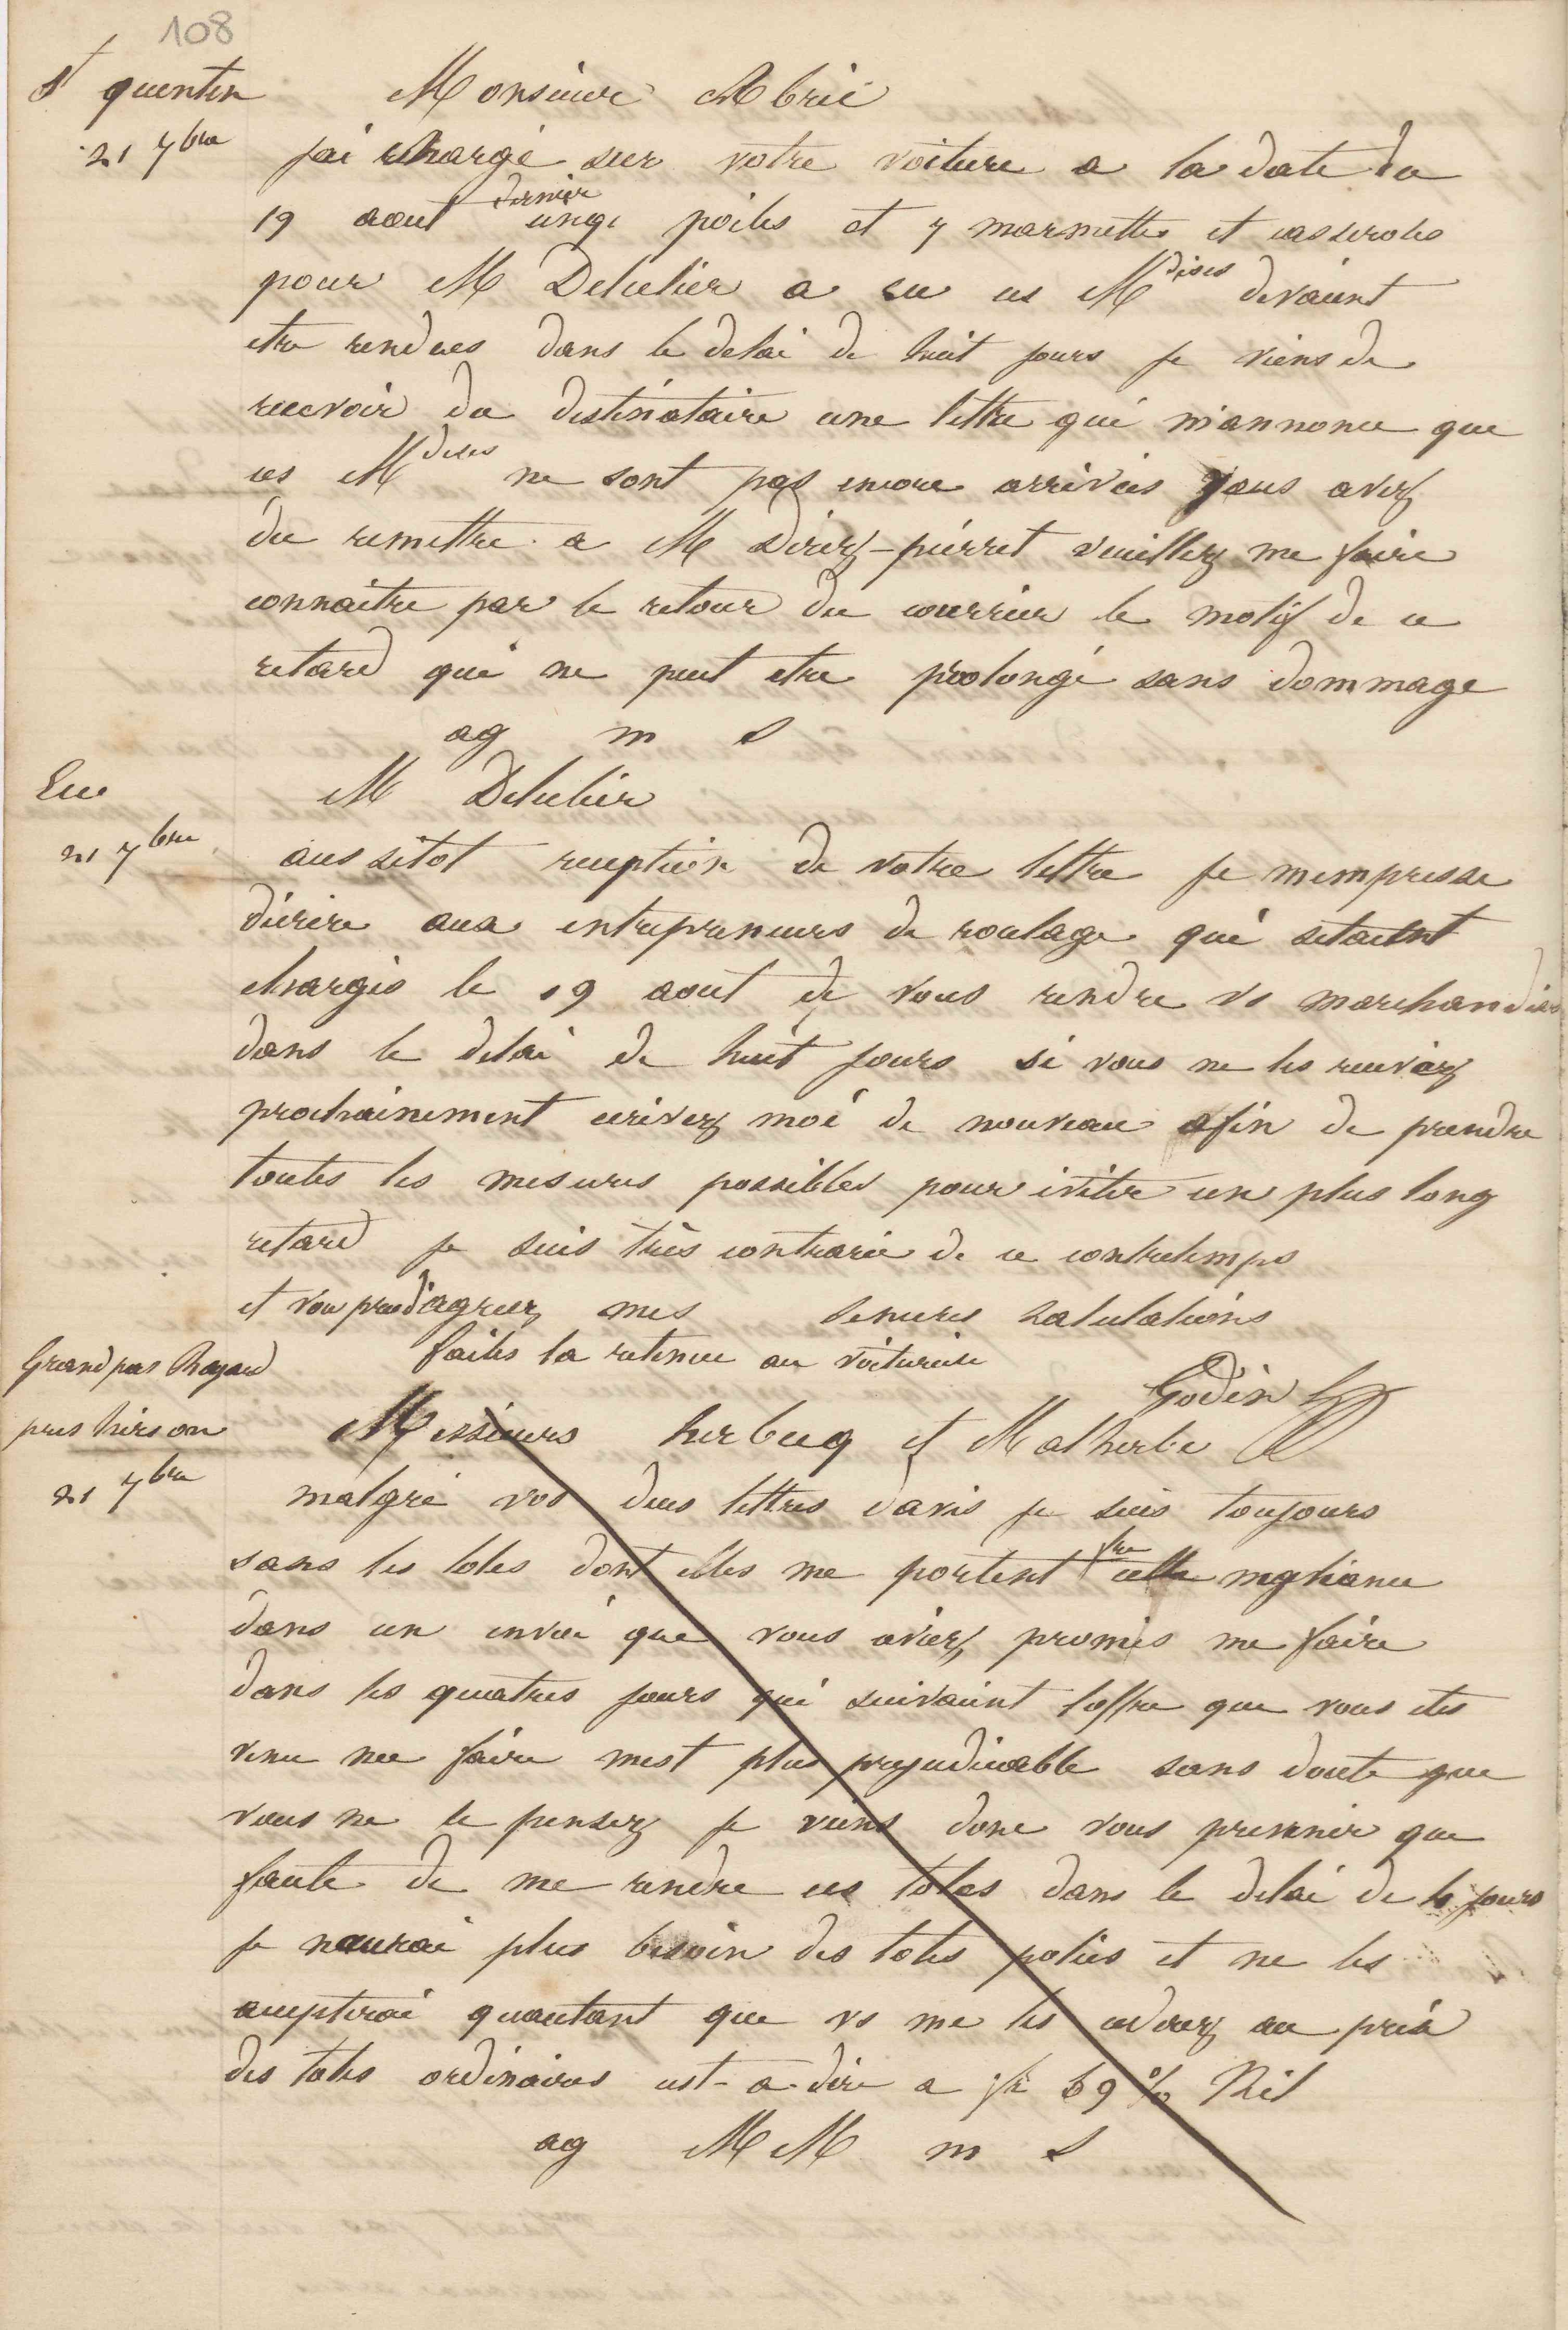 108
St quentin
21 7bre
Monsieur Abrié
jai chargé sur votre voiture a la date du
19 aout dernier onze poiles et 7 marmettes et casseroles
pour M Delulier a eu ces Mdises devaient
etre rendues dans le delai de huit jours je viens de
recevoir du destinataire une lettre qui m'annonce que
ces Mdises ne sont pas encore arrivées vous avez
du remettre a M Dérez-pierret veuillez me faire
connaitre par le retour du courrier le motif de ce
retard qui ne peut etre prolongé sans dommage
ag m s
Eu
21 7bre
M Delulier
aussitot reception de votre lettre je mempresse
décrire aux entrepreneurs de roulage qui setaient
chargés le 19 aout de vous rendre vs marchandises
dans le delai de huit jours si vous ne les recevez
prochainement ecrivez moi de nouveau afin de prendre
toutes les mesures possibles pour eviter un plus long
retard je suis très contrarié de ce contretemps
et vous pried'agreer mes sinceres salutations
faites la retenue au voiturier
Godin
Grand pas Bayard
pres hirson
21 7bre
Messieurs herbecq et Malherbe
malgré vos deus lettres davis je suis toujours
sans les toles dont elles me portent fre cette negliance
dans un envoi que vous aviez promis me faire
dans les quatres jours qui suivaient loffre que vous etes
venu me faire mest plus prejudicable sans doute que
vous ne le pensez je viens donc vous prevenir que
faute de me rendre ces toles dans le delai de 10 jours
je naurai plus besoin des toles polies et ne les
accepterai quautant que vs me les cederez au prix
des toles ordinaires cest-a-dire a fr 69 % Kil
ag MM m s